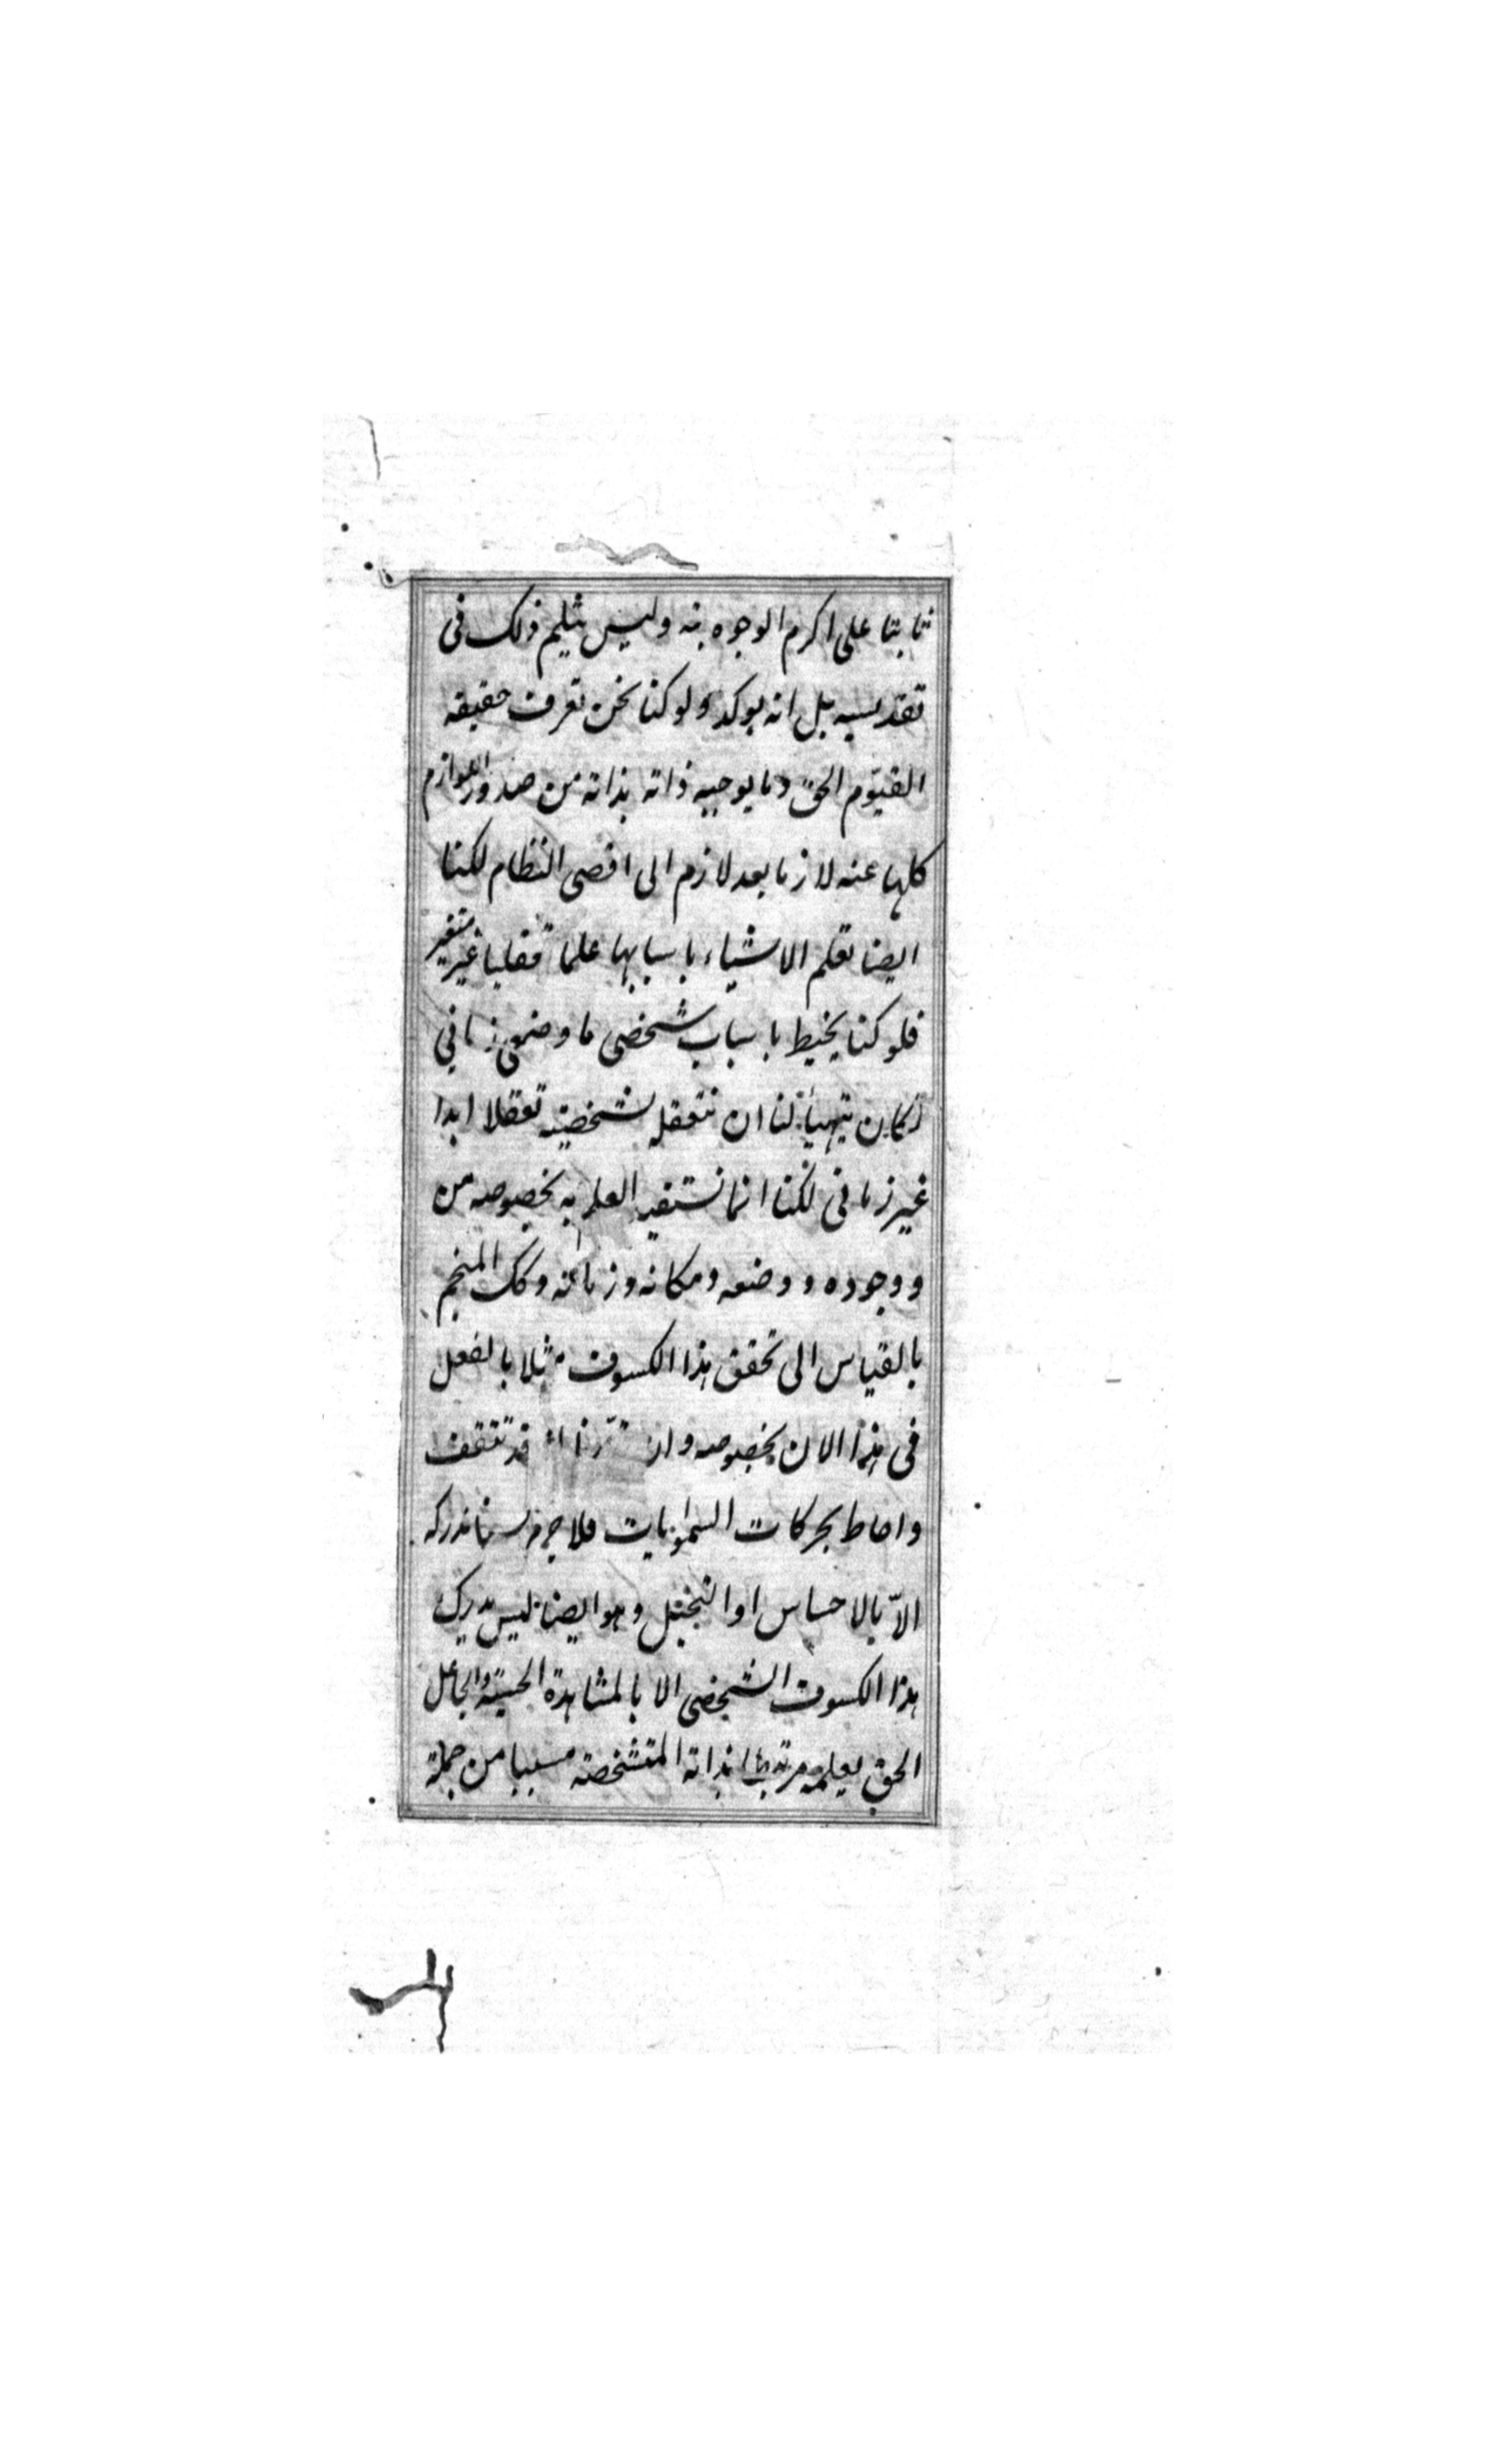 ثابتا على اكرم الوجوه بته وليس يثلم ذلك فى
تقديسه بل انه يوكده ولو كنا نحن نعرف حقيقه
القيّوم الحق وما يوجبه ذاته بذاته من صدور اللوازم
كلها عنه لازما بعد لازم الى اقصى النظام لكنا
ايضا نعلم الاشياء باسبابها علما عقليا غير متغير
فلو كنا نحيط باسباب شخصى ما وضعى زمانى
لكان يتهيأ لنا ان نتعقل شخصيته تعقلا ابدا
غير زمانى لكنا انما نستفيد العلم به بخصوصه من
وجوده ووضعه ومكانه وزمانه وكك المنجم
بالقياس الى تحقق هذا الكسوف مثلا بالفعل
فى هذا الان بخصوصه وان قد تثقف
واحاط بحركات السماويات فلا جرم لسنا ندركه
الاّ بالاحساس او التخيل وهو ايضا ليس يدرك
هذا الكسوف الشخصى الا بالمشاهدة الحسيّة والجاعل
الحق يعلمه مرتبطا بذاته المتشخصة مسببا من جملة